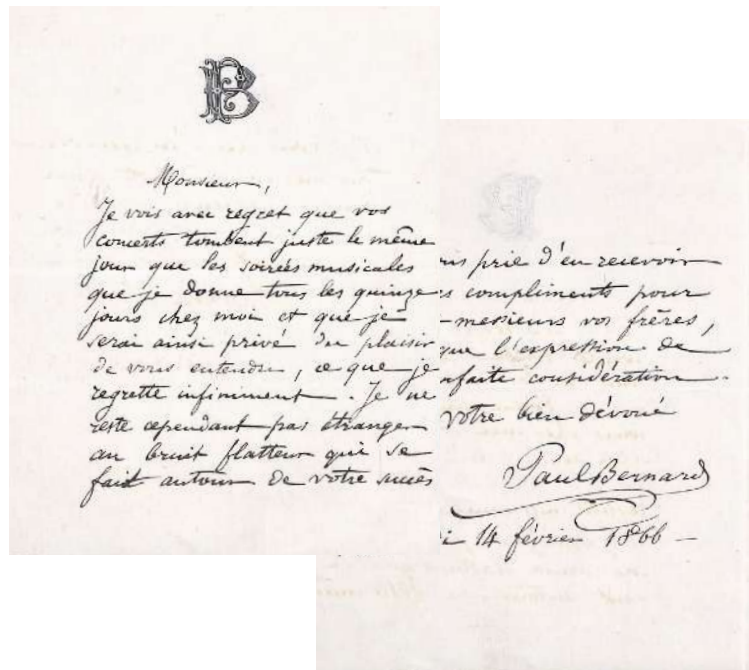 PB
Monsieur,
Je vois avec regret que vos
concerts tombent juste le même
jour que les soirées musicales
que je donne tous les quinze
jours chez moi et que je
serai ainsi privé du plaisir
de vous entendre, ce que je
regrette infiniment. Je ne
reste cependant pas étranger
au bruit flatteur qui se
fait autour de votre succès
prie d'en recevoir
compliments pour
messieurs vos frères,
que l'expression de
considération.
votre bien dévoué
Paul Bernard
14 février 1866 —